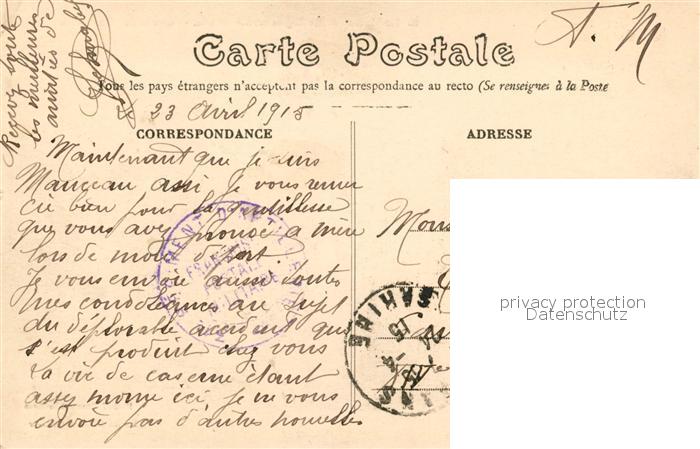 Recevez tous
les meilleures
amitiés de
A. M
Carte Postale
Tous les pays étrangers n'acceptent pas la correspondance au recto (Se renseigner à la Poste
23 Avril 1915
CORRESPONDANCE
ADRESSE
Maintenant que je suis
Manceau aussi je vous remer
cie bien pour la gentillesse
que vous avez prouvé a mère
lors de mon départ.
Je vous envoie aussi toutes
mes condoléances au sujet
du déplorable accident qui
s'est produit chez vous
La vie de caserne étant
assez morne ici je ne vous
envoie pas d'autres nouvelles
Mons
SARTHE
privacy protection
Datenschutz